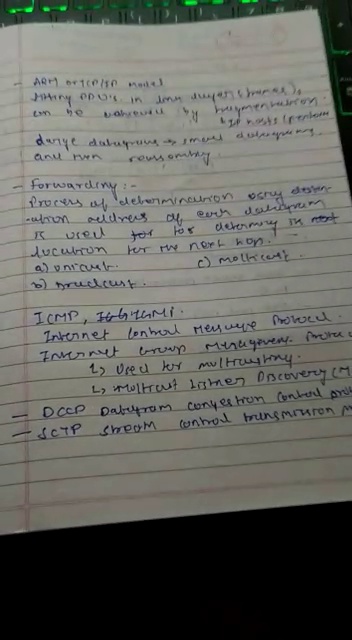 - ARM or TCP/IP model
fitting PDU's in link layer (frames),
can be achieved by fragmentation.
↳ IP hosts perform
large datagrams → small datagrams
and then reassembly.
- Forwarding :-
Process of determination every destin-
ation address of each datagram
is used for determing in
location for the next hop.
a) unicast. c) multicast.
b) broadcast.
ICMP, IGMP.
Internet Control Message Protocol.
Internet Group Management Protoc
↳ Used for multicasting.
↳ multicast Listner Discovery (M
- DCCP Datagram congestion control pro
- SCTP Stream control transmission